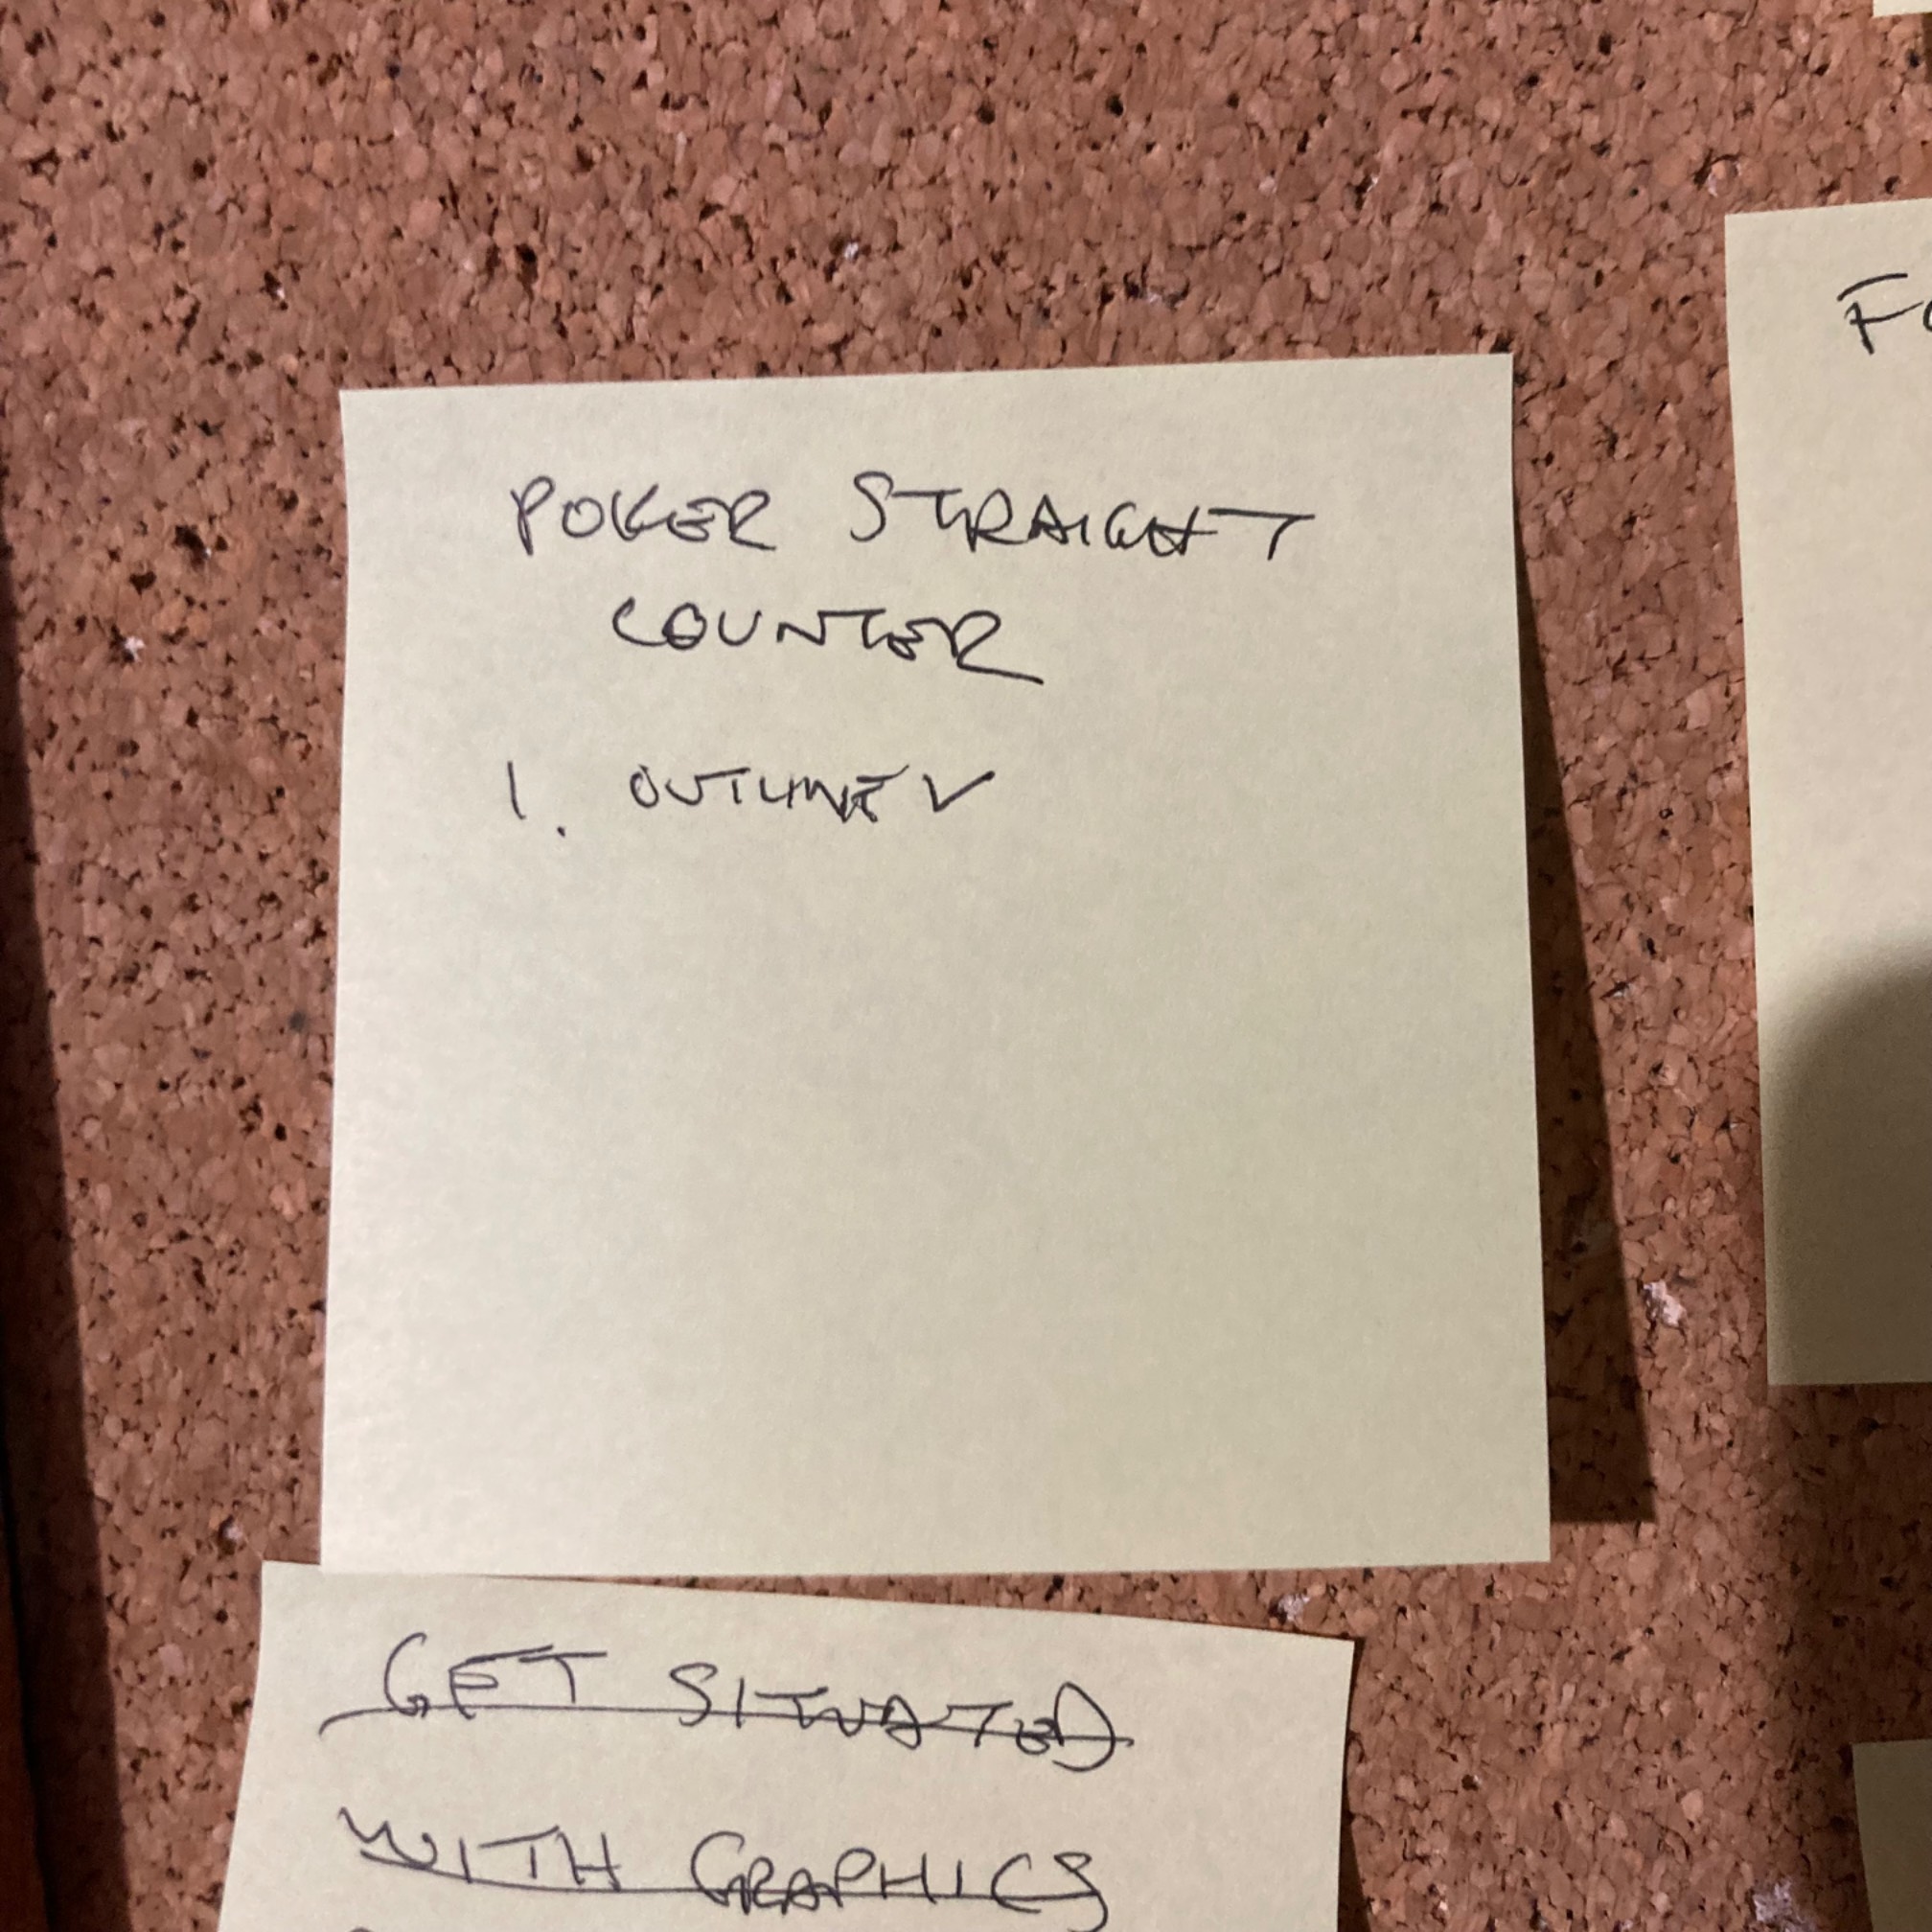 POKER STRAIGHT
COUNTER
1. OUTLINE ✓
GET SITUATED
WITH GRAPHICS